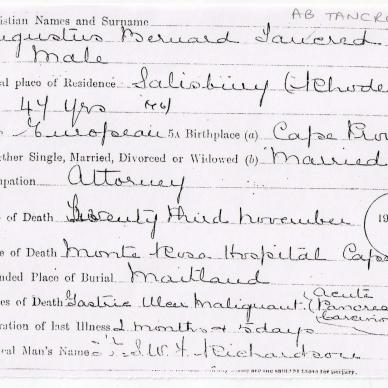 istian Names and Surname AB TANCRE
ugustus Bernard Tancred
Male
al place of Residence Salisbury (Rhode
47 yrs (46)
European 5A Birthplace (a) Cape Prov
ther Single, Married, Divorced or Widowed (b) Married
upation Attorney
of Death Twenty third November 19
e of Death Monte Rosa Hospital Cape
nded Place of Burial Maitland
es of Death Gastric Ulcer Malignant. (Acute Pancrea Carcino
ration of last Illness 2 months & 5 days
ical Man's Name S.W.F. Richardson